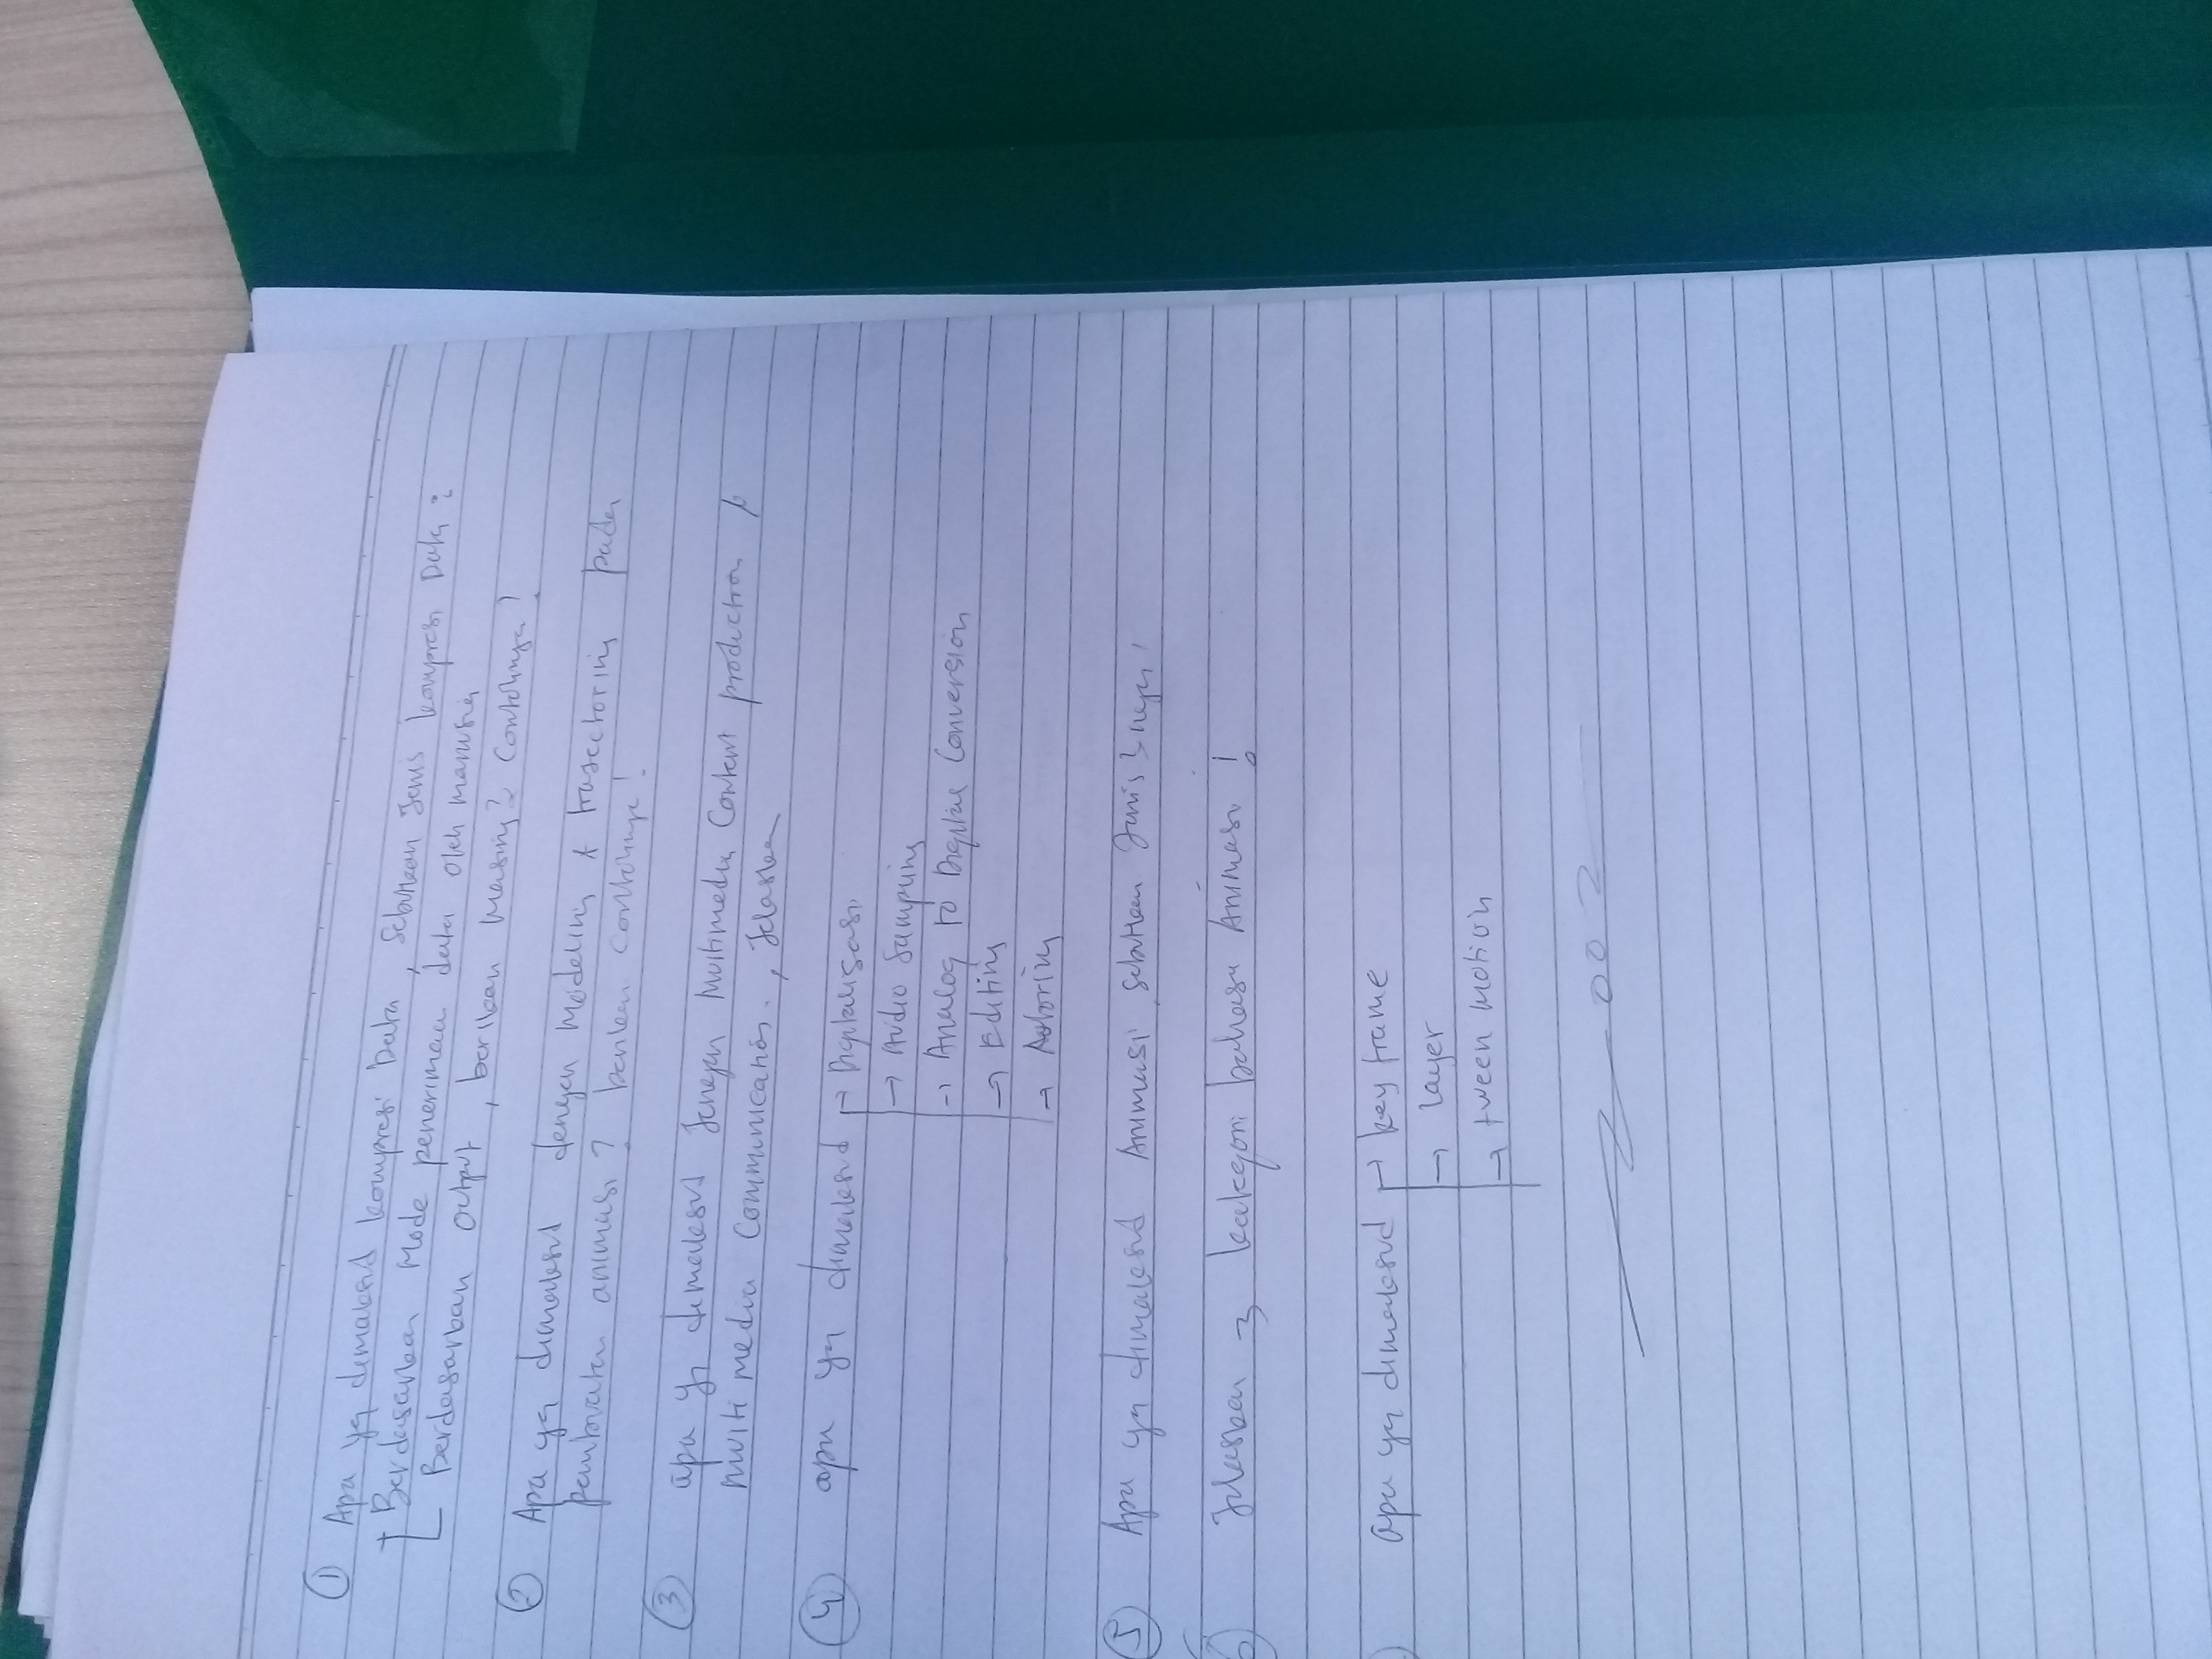 ① Apa yg dimaksud kompresi Data, Sebutkan Jenis kompresi Data :
Berdasarkan Mode penerimaan data oleh manusia
Berdasarkan output, berikan masing2 Contohnya!
② Apa yg dimaksud dengan Modeling & trajectoring pada
pembuatan animasi ? berikan contohnya!
③ apa yg dimaksud dengan Multimedia Content production &
multimedia Communication., Jelaskan
④ apa yg dimaksud → Digitalisasi
→ Audio Sampling
→ Analog to Digital Conversion
→ Editing
→ Autoring
⑤ Apa yg dimaksud Animasi sebutkan Jenis2nya!
Jelaskan 3 kategori bahasa Animasi!
apa yg dimaksud → key frame
→ layer
→ tween motion